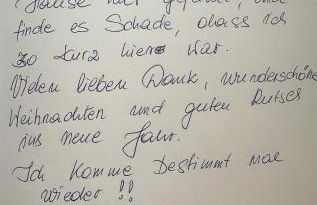 finde es Schade, dass ich
so kurz hier war.
Vielen lieben Dank, wunderschöne
Weihnachten und guten Rutsch
ins neue Jahr.
Ich komme bestimmt mal
wieder !!